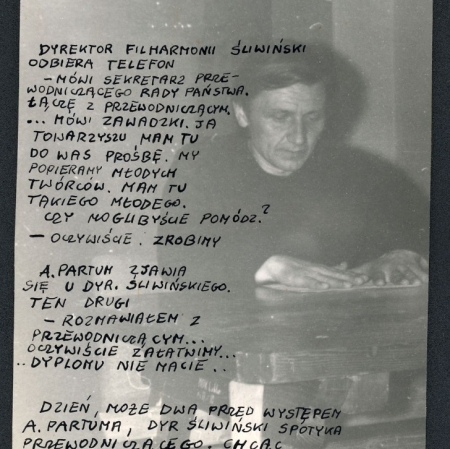 DYREKTOR FILHARMONII ŚLIWIŃSKI
ODBIERA TELEFON
– MÓWI SEKRETARZ PRZE-
WODNICZĄCEGO RADY PAŃSTWA.
ŁĄCZĘ Z PRZEWODNICZĄCYM.
... MÓWI ZAWADZKI. JA
TOWARZYSZU MAM TU
DO WAS PROŚBĘ. MY
POPIERAMY MŁODYCH
TWÓRCÓW. MAM TU
TAKIEGO MŁODEGO.
CZY MOGLIBYŚCIE POMÓDZ?
– OCZYWIŚCIE. ZROBIMY
A. PARTUM ZJAWIA
SIĘ U DYR. ŚLIWIŃSKIEGO.
TEN DRUGI
– ROZMAWIAŁEM Z
PRZEWODNICZĄCYM...
OCZYWIŚCIE ZAŁATWIMY...
..DYPLOMU NIE MACIE..
DZIEŃ, MOŻE DWA PRZED WYSTĘPEM
A. PARTUMA, DYR ŚLIWIŃSKI SPOTYKA
PRZEWODNICZĄCEGO. CHCĄC